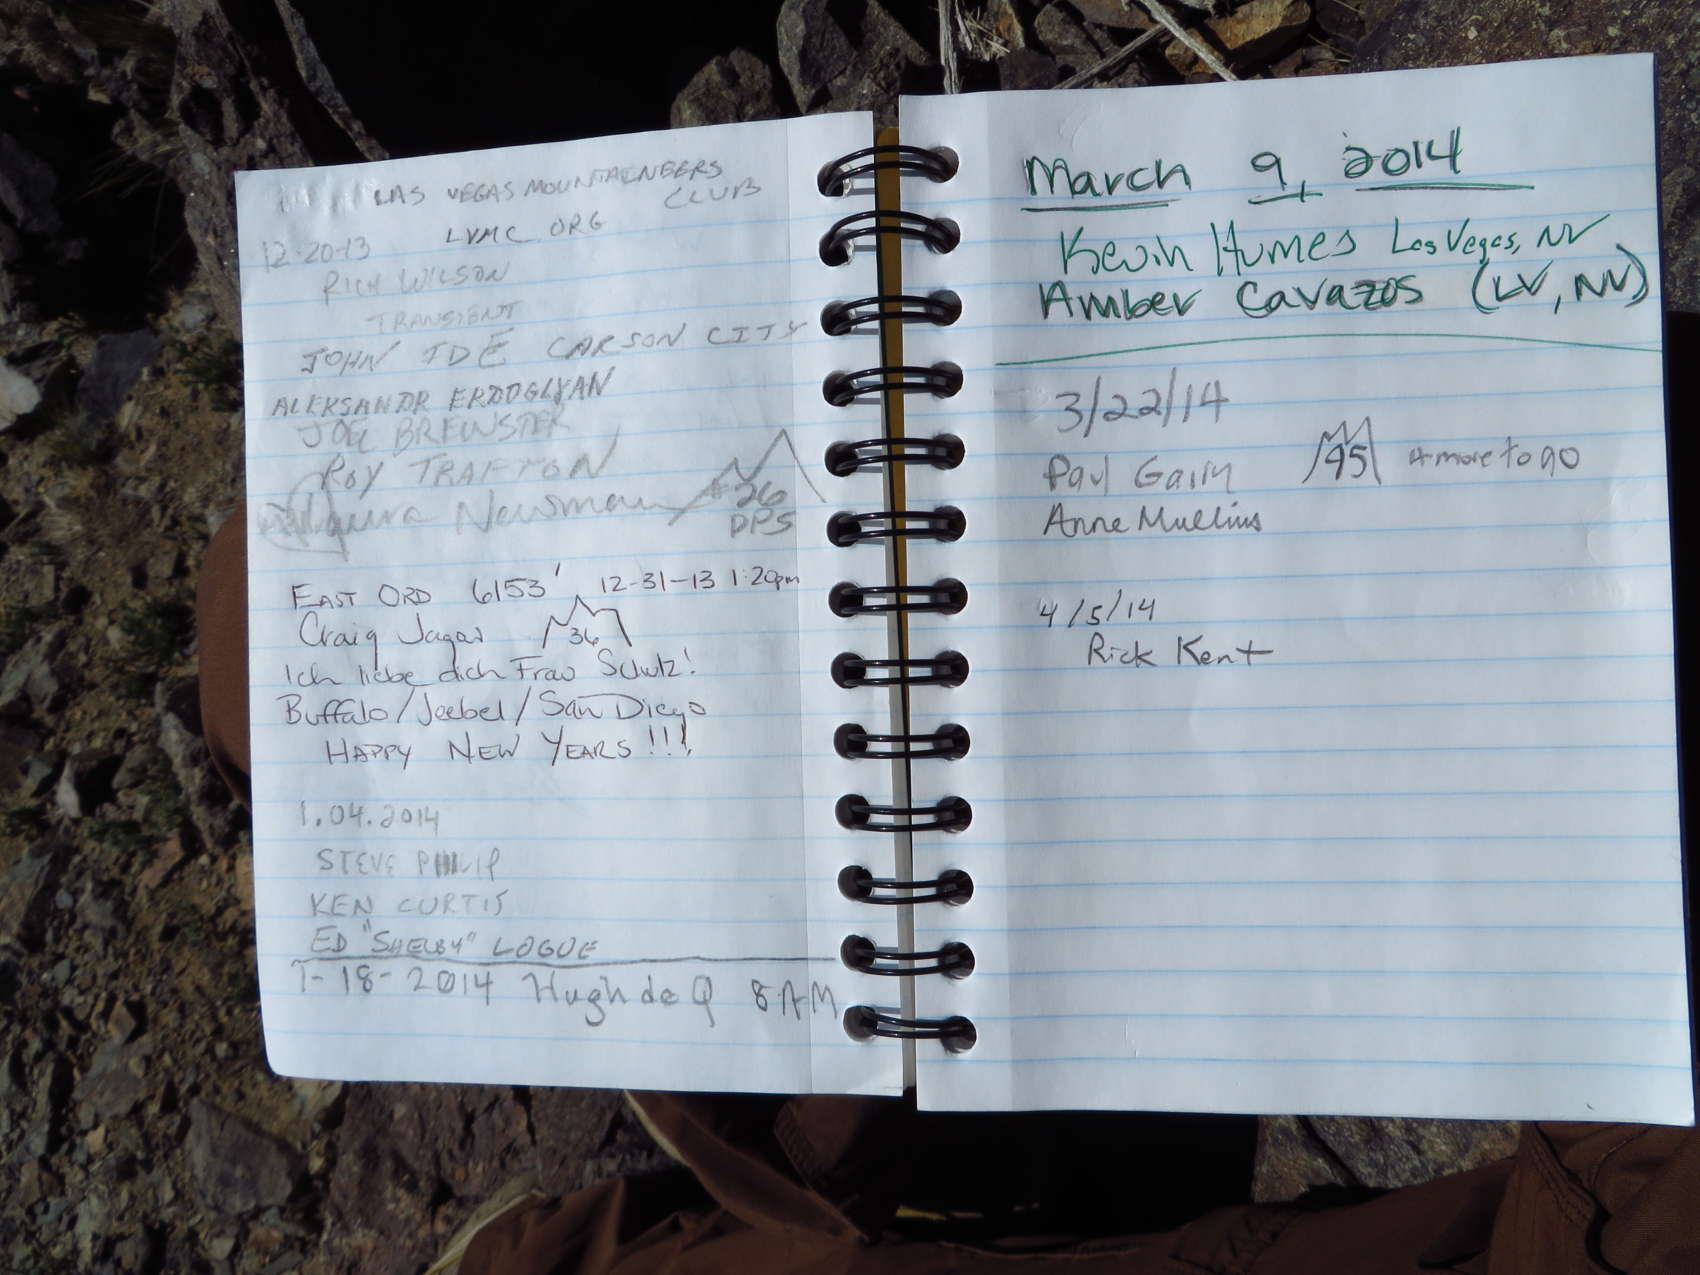 LAS VEGAS MOUNTAINEERS
CLUB
LVMC.ORG
12-20-13
RICH WILSON
TRANSIENT
JOHN IDE CARSON CITY
ALEKSANDR ERDOGLYAN
JOEL BREWSTER
ROY TRAFTON
Laura Newman #26
DPS
EAST ORD 6153' 12-31-13 1:20pm
Craig Jagas 36
Ich liebe dich Frau
Buffalo/Jeebel/San Diego
HAPPY NEW YEARS!!!
1.04.2014
STEVE PHILIP
KEN CURTIS
ED "SHELBY" LOGUE
1-18-2014 Hugh de Q 8 AM
March 9, 2014
Kevin Humes Las Vegas, NV
Amber Cavazos (LV, NV)
3/22/14
Paul Garry 95 4 more to go
Anne Mullins
4/5/14
Rick Kent